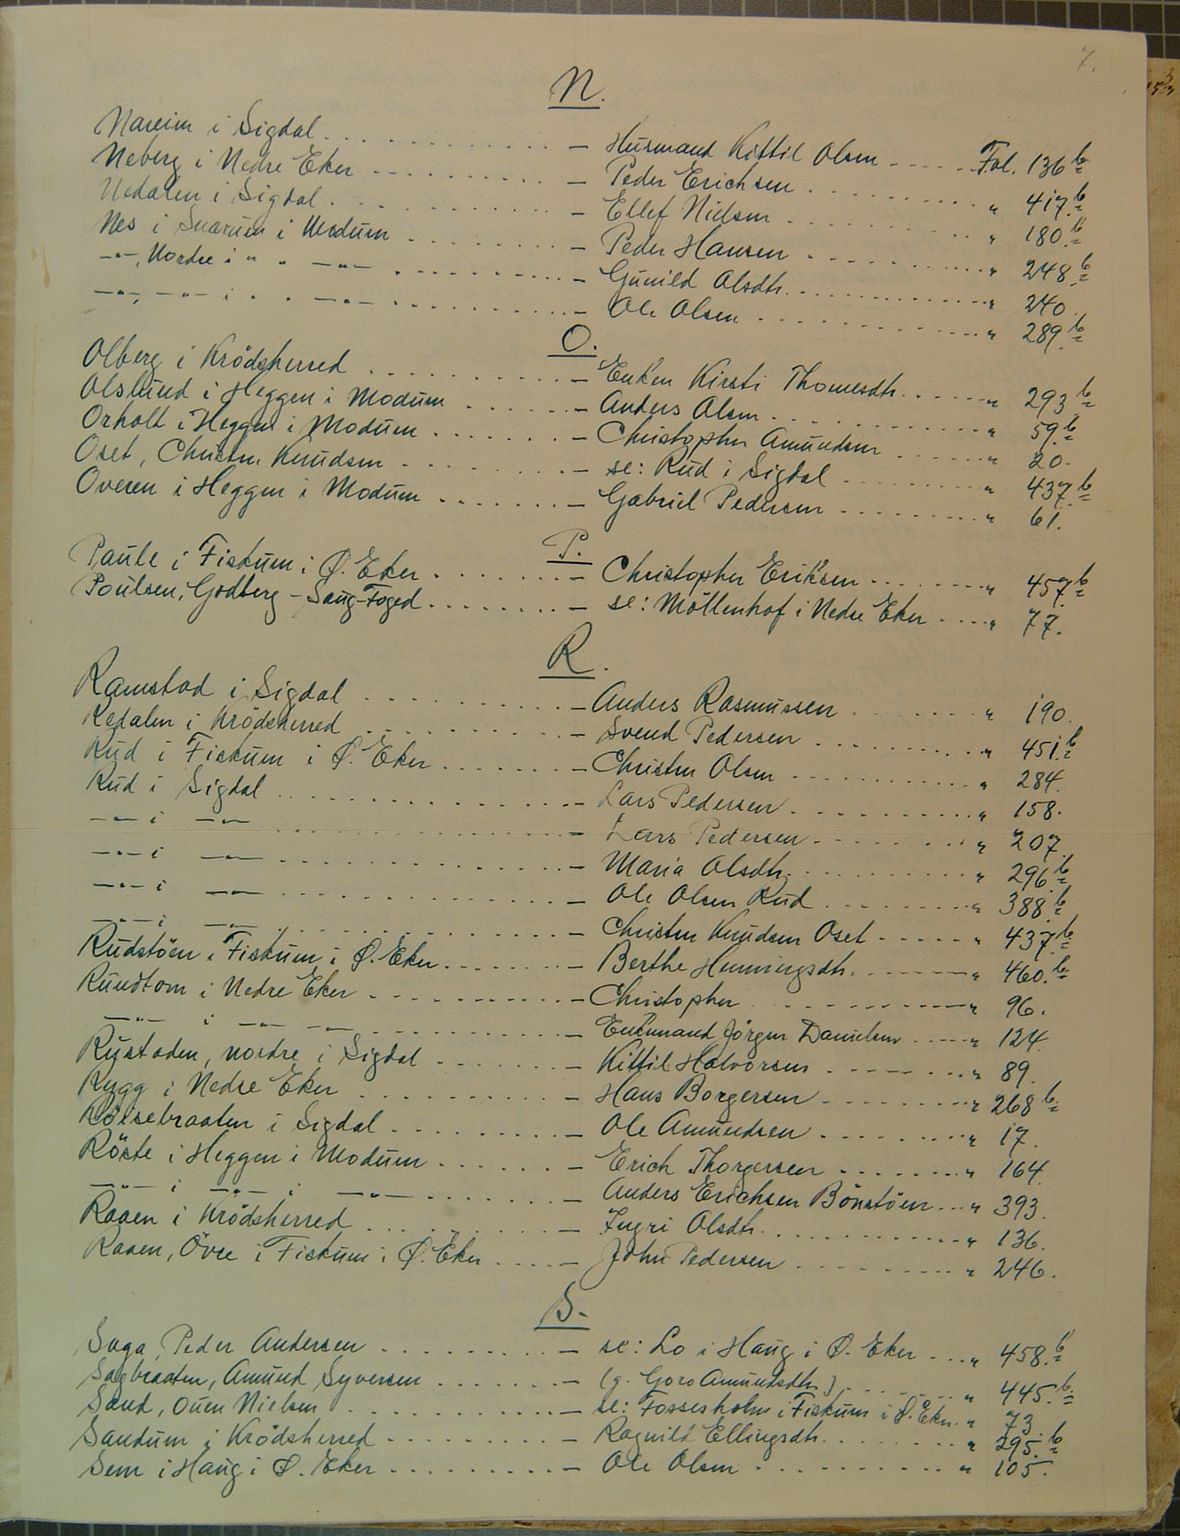 7.
N.
Nareim i Sigdal . . . . . . . . . . — Husmand Kittil Olsen - - - - Fol. 136 b
Neberg i Nedre Eker . . . . . . . . . . — Peder Erichsen . . . . . . . . . " 417. b
Nedalen i Sigdal . . . . . . . . . . — Ellef Nielsen . . . . . . . . . " 180. b
Nes i Snarum i Modum . . . . . . . . — Peder Hansen . . . . . . . . . " 248. b
—"—, Nordre i " " —"— . . . . . . . . — Gunild Olsdtr. . . . . . . . . . " 240.
—"—, —"— i " " —"— . . . . . . . . — Ole Olsen . . . . . . . . . " 289. b
O.
Olberg i Krödsherred . . . . . . . . — Enken Kirsti Thomesdtr. . . . . . " 293 b
Olslund i Heggen i Modum . . . . . . — Anders Olsen . . . . . . . . . " 59. b
Orholt i Heggen i Modum . . . . . . — Christopher Amundsen . . . . . . " 20.
Oset, Christen Knudsen . . . . . . . — se: Rud i Sigdal . . . . . . . " 437. b
Overen i Heggen i Modum . . . . . . — Gabriel Pedersen . . . . . . . " 61.
P.
Paule i Fiskum i Ø. Eker . . . . . . — Christopher Eriksen . . . . . . " 457. b
Poulsen, Godtberg - Saug-Foged . . . . . . — se: Möllenhof i Nedre Eker . . . . " 77.
R.
Ramstad i Sigdal . . . . . . . . — Anders Rasmussen . . . . . . . " 190.
Redalen i Krödsherred . . . . . . . — Svend Pedersen . . . . . . . . " 451. b
Rud i Fiskum i Ø. Eker . . . . . . . — Christen Olsen . . . . . . . . " 284.
Rud i Sigdal . . . . . . . . . . — Lars Pedersen . . . . . . . . " 158.
—"— i —"— . . . . . . . . . . — Lars Pedersen . . . . . . . . " 207.
—"— i —"— . . . . . . . . . . — Maria Olsdtr. . . . . . . . . " 296. b
—"— i —"— . . . . . . . . . . — Ole Olsen Rud . . . . . . . . " 388. b
—"— i —"— . . . . . . . . . . — Christen Knudsen Oset . . . . . . " 437. b
Rudstöen i Fiskum i Ø. Eker . . . . . . — Berthe Henningsdtr. . . . . . . " 460. b
Rundtom i Nedre Eker . . . . . . . . — Christopher . . . . . . . . . " 96.
—"— i —"— —"— . . . . . . . . — Enkemand Jörgen Danielsen . . . . . " 124.
Rustaden, nordre i Sigdal . . . . . . — Kittil Halvorsen . . . . . . . " 89.
Rygg i Nedre Eker . . . . . . . . — Hans Borgersen . . . . . . . . " 268 b
Röisebraaten i Sigdal . . . . . . . — Ole Amundsen . . . . . . . . " 17.
Röste i Heggen i Modum . . . . . . — Erich Thorgersen . . . . . . . " 164.
—"— i —"— i —"— . . . . . . — Anders Erichsen Bönstöen . . . " 393.
Raaen i Krödsherred . . . . . . . — Ingri Olsdtr. . . . . . . . . " 136.
Raaen, Övre i Fiskum i Ø. Eker . . . . — John Pedersen . . . . . . . . " 246.
S.
Saga, Peder Andersen . . . . . . . — se: Lo i Haug i Ø. Eker . . . " 458. b
Sagbraaten, Amund Syversen . . . . . . — (g. Goro Amundsdtr.) . . . . . . " 445. b
Sand, Ouen Nielsen . . . . . . . . — se: Fossesholm i Fiskum i Ø. Eker. " 73.
Sandum i Krödsherred . . . . . . . — Ragnild Ellingsdtr. . . . . . . " 295. b
Sem i Haug i Ø. Eker . . . . . . . — Ole Olsen . . . . . . . . . " 105.